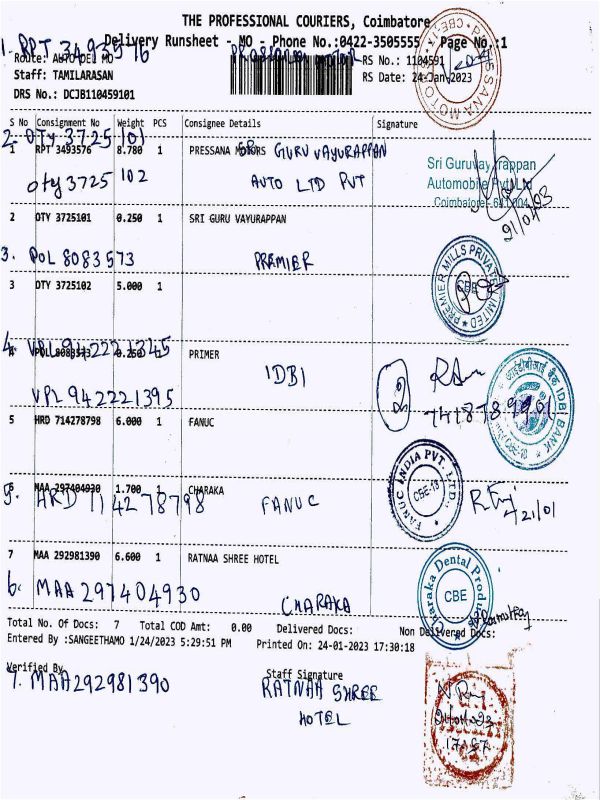 THE PROFESSIONAL COURIERS, Coimbatore
Delivery Runsheet - MO - Phone No.:0422-3505555 Page No.:1
1. RPT 3493576 PRESSANA MOTOR
Route: AUTO DEL MO RS No.: 1104591
Staff: TAMILARASAN RS Date: 24-Jan-2023
DRS No.: DCJB110459101
S No Consignment No Weight PCS Consignee Details Signature
2. OTY 3725101 SRI GURUVAYURAPPAN
1 RPT 3493576 8.780 1 PRESSANA MOTORS
OTY 3725102 AUTO LTD PVT
Sri Guruvayurappan
Automobile Pvt Ltd
Coimbatore - 641 004
2 OTY 3725101 0.250 1 SRI GURU VAYURAPPAN
3. POL 8083573 PREMIER
PREMIER MILLS PRIVATE LIMITED
CBE
3 OTY 3725102 5.000 1
4. VPL 942221345
4 POL 8083573 0.250 1 PRIMER
IDBI
VPL 942221395
आईडीबीआई बैंक IDBI BANK
5 HRD 714278798 6.000 1 FANUC
FANUC INDIA PVT. LTD.
CBE-13
6 MAA 297404930 1.700 1 CHARAKA
5. HRD 714278798 FANUC
7 MAA 292981390 6.600 1 RATNAA SHREE HOTEL
6. MAA 297404930 CHARAKA
Charaka Dental Produ
CBE
Total No. Of Docs: 7 Total COD Amt: 0.00 Delivered Docs: Non Delivered Docs:
Entered By :SANGEETHAMO 1/24/2023 5:29:51 PM Printed On: 24-01-2023 17:30:18
Verified By Staff Signature
7. MAA292981390 RATNAA SHREE
HOTEL